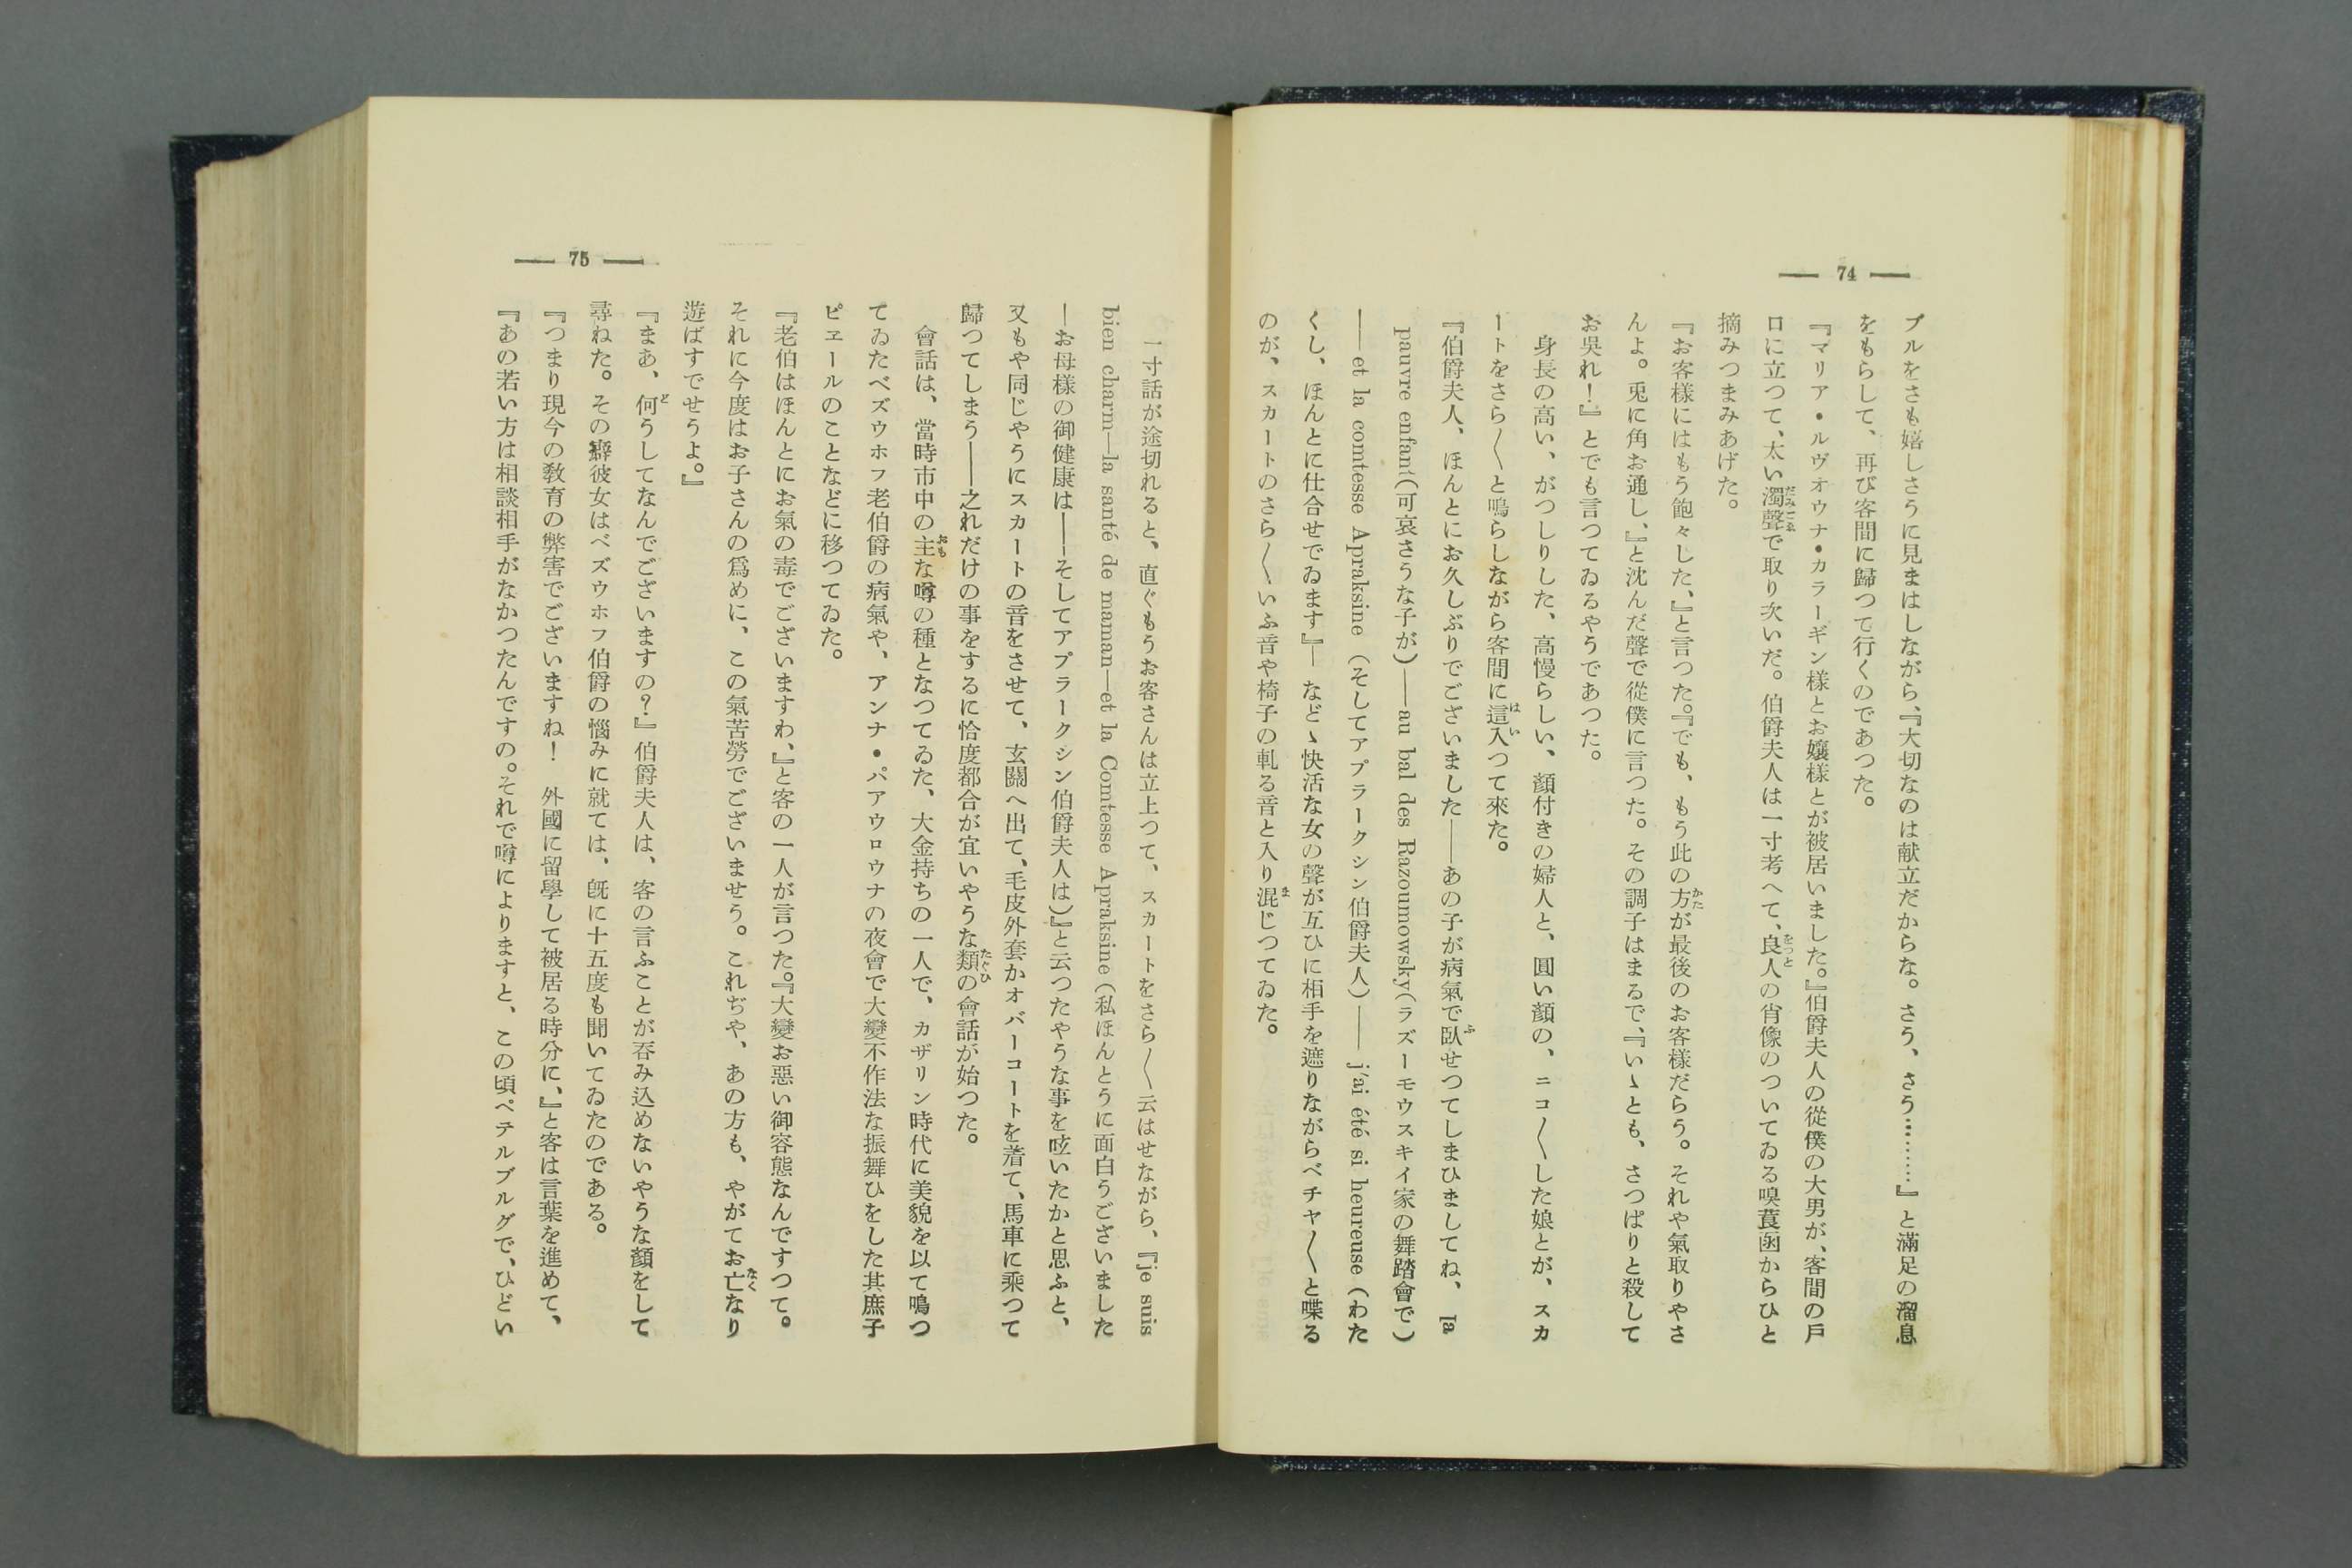 — 74 —
ブルをさも嬉しさうに見まはしながら、『大切なのは献立だからな。さう、さう………』と滿足の溜息
をもらして、再び客間に歸つて行くのであつた。
『マリア・ルヴオウナ・カラーギン樣とお孃樣とが被居いました。』伯爵夫人の從僕の大男が、客間の戸
口に立つて、太い濁聲で取り次いだ。伯爵夫人は一寸考へて、良人の肖像のついてゐる嗅莨函からひと
摘みつまみあげた。
『お客樣にはもう飽々した、』と言つた。『でも、もう此の方が最後のお客樣だらう。それや氣取りやさ
んよ。兎に角お通し、』と沈んだ聲で從僕に言つた。その調子はまるで、『いゝとも、さつぱりと殺して
お呉れ！』とでも言つてゐるやうであつた。
身長の高い、がつしりした、高慢らしい、顏付きの婦人と、圓い顏の、ニコ〳〵した娘とが、スカ
ートをさら〳〵と鳴らしながら客間に這入つて來た。
『伯爵夫人、ほんとにお久しぶりでございました――あの子が病氣で臥せつてしまひましてね、 la
pauvre enfant(可哀さうな子が)――au bal des Razoumowsky(ラズーモウスキイ家の舞踏會で)
――et la comtesse Apraksine (そしてアプラークシン伯爵夫人)―― j'ai été si heureuse (わた
くし、ほんとに仕合せでゐます』― などゝ快活な女の聲が互ひに相手を遮りながらベチヤ〳〵と喋る
のが、スカートのさら〳〵いふ音や椅子の軋る音と入り混じつてゐた。
— 75 —
一寸話が途切れると、直ぐもうお客さんは立上つて、スカートをさら〳〵云はせながら、『je suis
bien charm—la santé de maman—et la Comtesse Apraksine (私ほんとうに面白うございました
―お母樣の御健康は――そしてアプラークシン伯爵夫人は)』と云つたやうな事を呟いたかと思ふと、
又もや同じやうにスカートの音をさせて、玄關へ出て、毛皮外套かオバーコートを着て、馬車に乘つて
歸つてしまう――之れだけの事をするに恰度都合が宜いやうな類の會話が始つた。
會話は、當時市中の主な噂の種となつてゐた、大金持ちの一人で、カザリン時代に美貌を以て鳴つ
てゐたベズウホフ老伯爵の病氣や、アンナ・パアウロウナの夜會で大變不作法な振舞ひをした其庶子
ピエールのことなどに移つてゐた。
『老伯はほんとにお氣の毒でございますわ、』と客の一人が言つた。『大變お惡い御容態なんですつて。
それに今度はお子さんの爲めに、この氣苦勞でございませう。これぢや、あの方も、やがてお亡なり
遊ばすでせうよ。』
『まあ、何うしてなんでございますの？』伯爵夫人は、客の言ふことが呑み込めないやうな顏をして
尋ねた。その癖彼女はベズウホフ伯爵の惱みに就ては、旣に十五度も聞いてゐたのである。
『つまり現今の敎育の弊害でございますね！　外國に留學して被居る時分に、』と客は言葉を進めて、
『あの若い方は相談相手がなかつたんですの。それで噂によりますと、この頃ペテルブルグで、ひどい